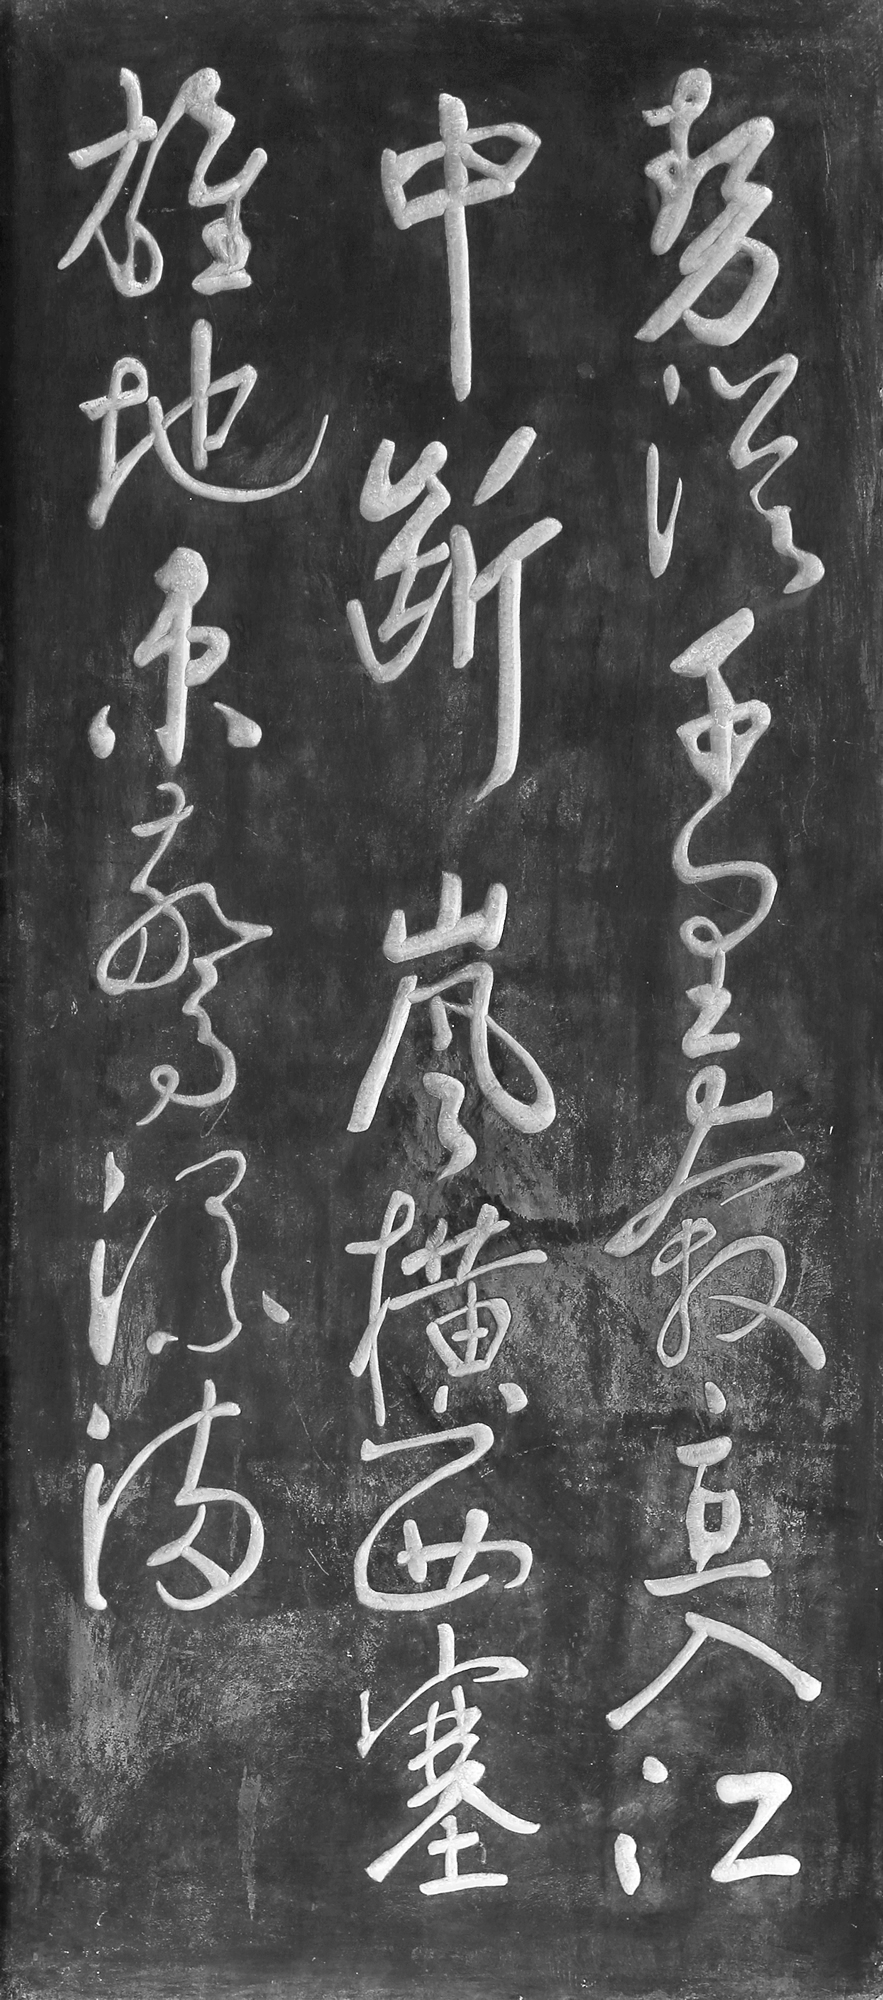 勢從千里奔直入江
中斷嵐橫西塞
雄地束驚流滿